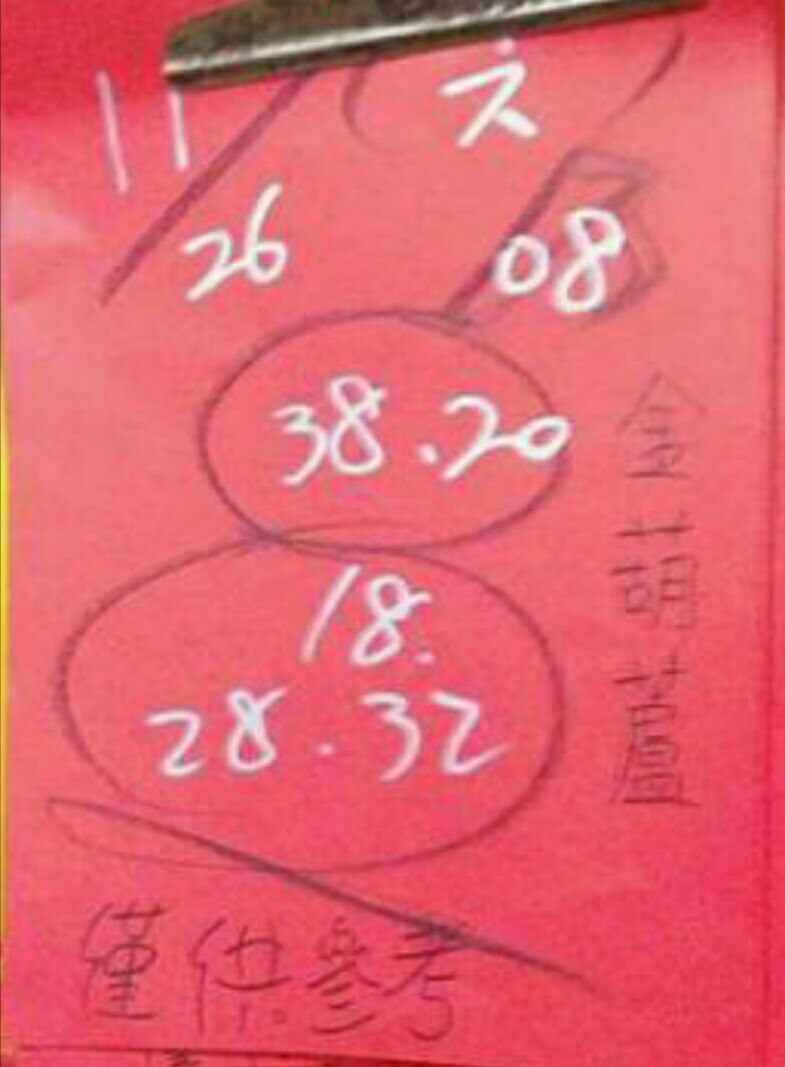 11 六
26 08
38.20
18.
28.32
金葫蘆
僅供參考